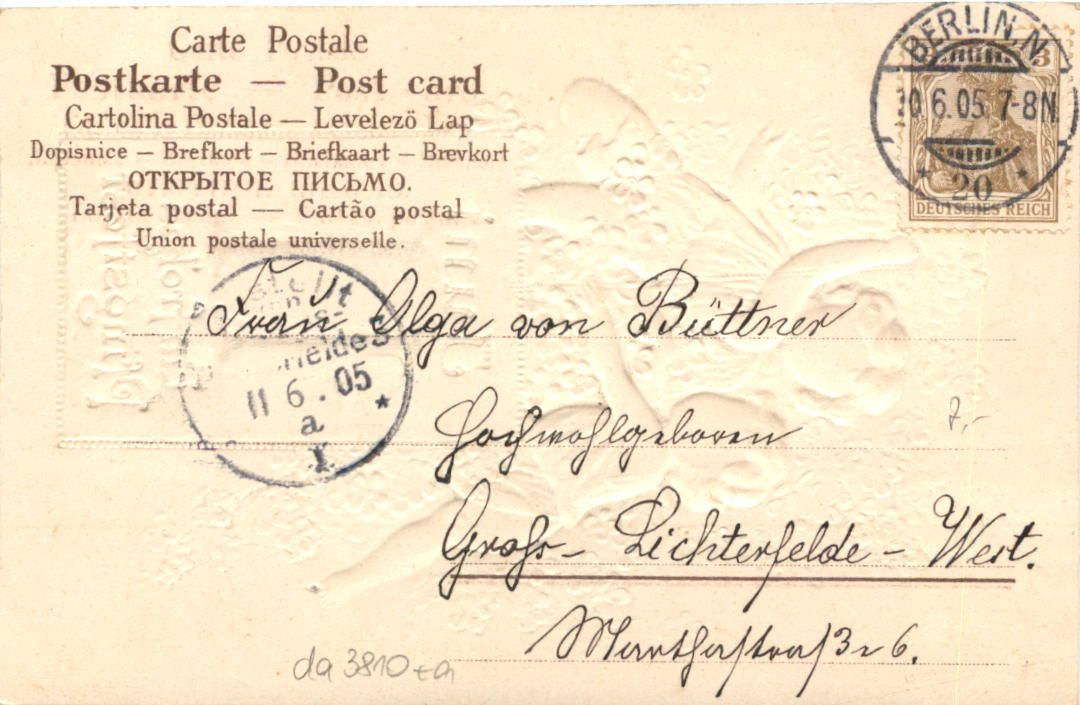 Carte Postale
Postkarte — Post card
Cartolina Postale — Levelezö Lap
Dopisnice — Brefkort — Briefkaart — Brevkort
ОТКРЫТОЕ ПИСЬМО.
Tarjeta postal — Cartão postal
Union postale universelle.
BERLIN N.
3
10.6.05. 7-8N.
* 20 *
DEUTSCHES REICH
Frau Olga von Büttner
11 6.05
a *
Hochwohlgeboren
7,-
Gross-Lichterfelde-West.
Marthastraße 6.
da 3810